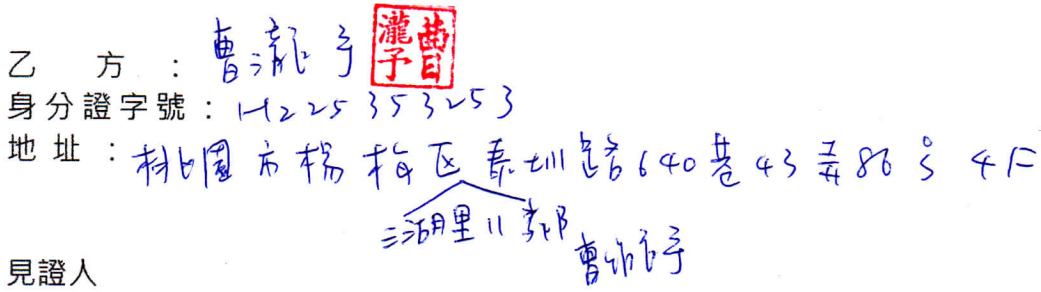 乙 方 : 曹瀧予
曹瀧予
身分證字號 : H225353253
地址 : 桃園市楊梅区泰圳路640巷43弄86号 4F
三湖里11鄰
曹瀧予
見證人